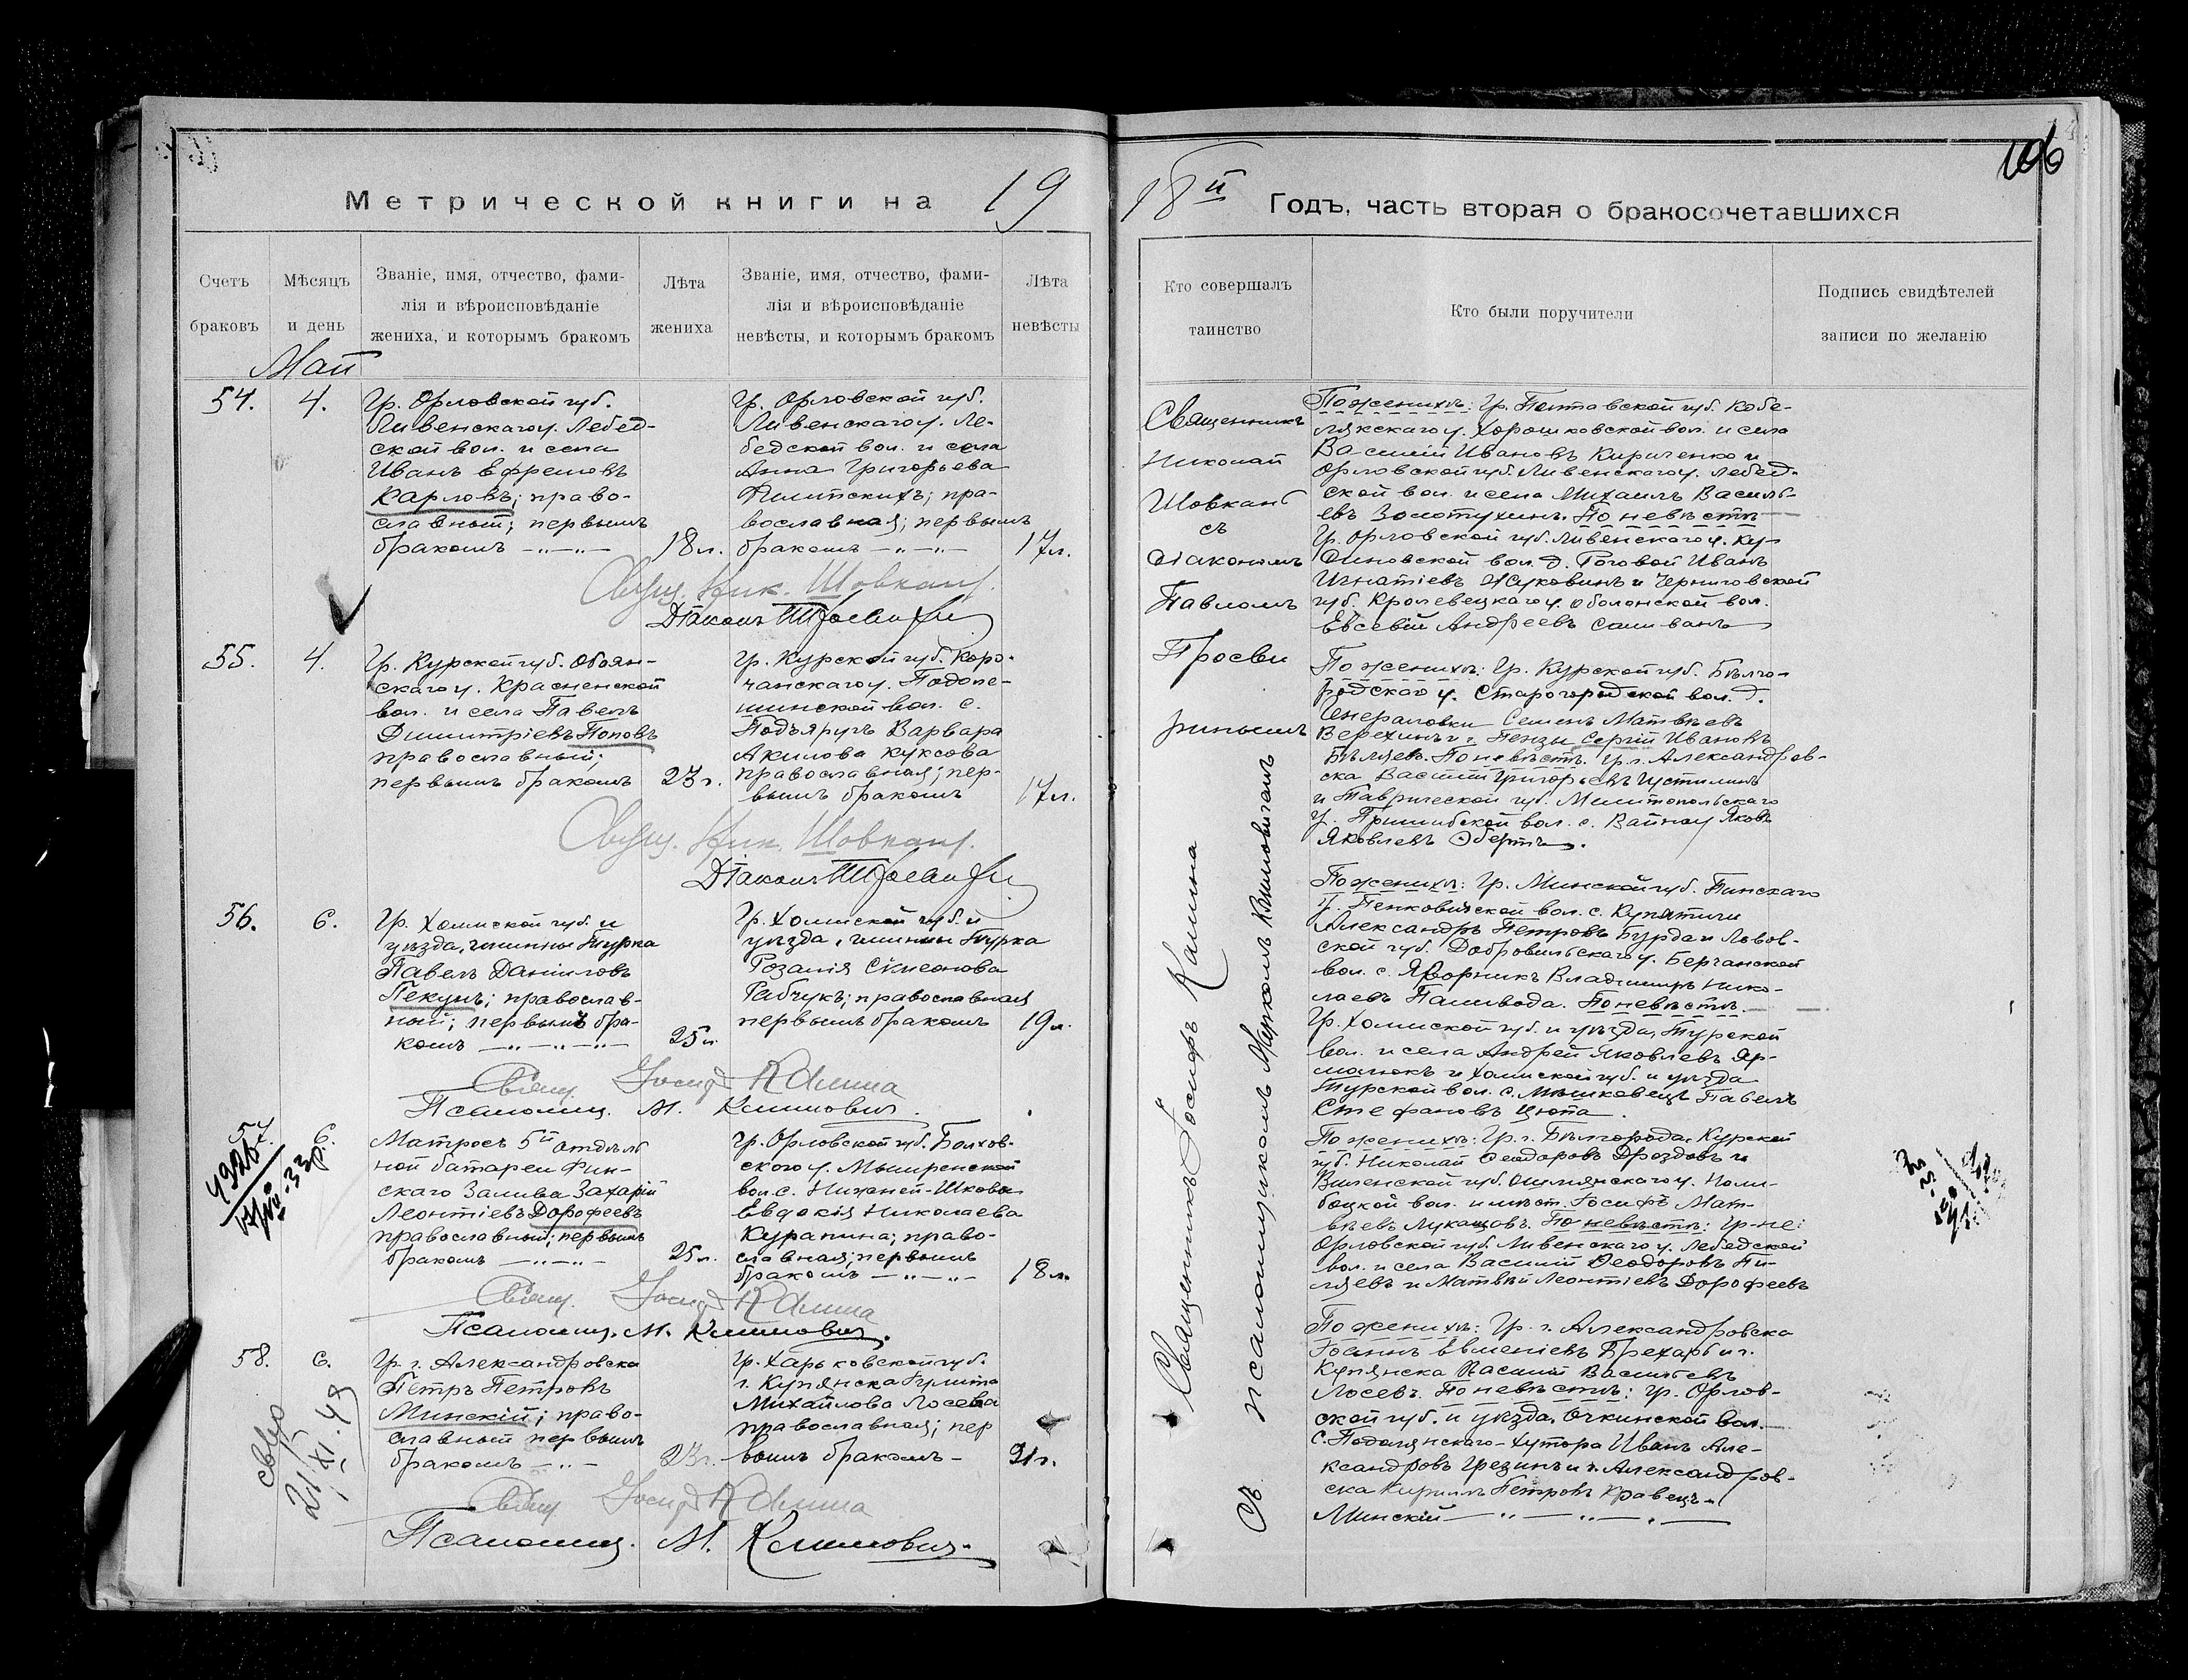 106
Метрической книги на 19
18й Годъ, часть вторая о бракосочетавшихся
Счетъ браковъ
Мѣсяцъ и день
Званіе, имя, отчество, фами-
лія и вѣроисповѣданіе
жениха, и которымъ бракомъ
Лѣта жениха
Званіе, имя, отчество, фами-
лія и вѣроисповѣданіе
невѣсты, и которымъ бракомъ
Лѣта невѣсты
Кто совершалъ таинство
Кто были поручители
Подпись свидѣтелей
записи по желанію
Май
54. 4.
Гр. Орловской губ.
Ливенскаго у. Лебед-
ской вол. и села
Иванъ Ефремовъ
Карловъ; право-
славный; первымъ
бракомъ
18 л.
Гр. Орловской губ.
Ливенскаго у. Ле-
бедской вол. и села
Анна Григорьева
пра-
вославная; первымъ
бракомъ
17 л.
Свящ. Ник. Шовкапъ
Діаконъ
Священникъ
Николай
Шовкапъ
съ
діакономъ
Павломъ
Просви
рнинымъ
По женихѣ: Гр. Полтавской губ. Кобе-
лякскаго у. Хорошковской вол. и села
Василій Ивановъ Кириченко и
Орловской губ. Ливенскаго у. Лебед-
ской вол. и села Михаилъ Василь-
евъ Золотухинъ. По невѣстѣ
Гр. Орловской губ. Ливенскаго у. Ку-
диновской вол. д. Роговой Иванъ
Игнатіевъ Жуковинъ и Черниговской
губ. Кролевецкаго у. Оболонской вол.
Евсевій Андреевъ Саливанъ
55. 4.
Гр. Курской губ. Обоян-
скаго у. Красненской
вол. и села Павелъ
Димитріевъ Поповъ
православный;
первымъ бракомъ
23 г.
Гр. Курской губ. Коро-
чанскаго у. Подоле-
шинской вол. с.
Подъяругъ Варвара
Акилова Куксова
православная; пер-
вымъ бракомъ
17 л.
Свящ. Ник. Шовкапъ
Діаконъ
По женихѣ: Гр. Курской губ. Бѣлго-
родскаго у. Старогородской вол. д.
Генераловки Семенъ Матвѣевъ
Верехинъ и г. Пензы Сергій Ивановъ
Бѣляевъ. По невѣстѣ. Гр. г. Александров-
ска Василій Григорьевъ Устимовъ
и Таврической губ. Мелитопольскаго
у. Пришибской вол. с. Вайнау Яковъ
Яковлевъ Обертъ.
56. 6.
Гр. Холмской губ. и
уѣзда, гмины Турка
Павелъ Даниловъ
Пекунъ; православ-
ный; первымъ бра-
комъ
25 л.
Гр. Холмской губ. и
уѣзда, гмины Турка
Розалія Симеонова
Рабчукъ; православная
первымъ бракомъ
19 л.
Свящ. Іосифъ Калина
Псаломщ. М. Климовичъ.
Священникъ Іосифъ Калина
Съ псаломщикомъ Маркомъ Климовичемъ
По женихѣ: Гр. Минской губ. Пинскаго
у. Пенковичской вол. с. Купятичи
Александръ Петровъ Бурда и Львов-
ской губ. Добровильскаго у. Берчанской
вол. с. Яворникъ Владиміръ Нико-
лаевъ Паливода. По невѣстѣ.
Гр. Холмской губ. и уѣзда, Турской
вол. и села Андрей Яковлевъ Яр-
молюкъ и Холмской губ. и уѣзда
Турской вол. с. Мѣшковецъ Павелъ
Стефановъ Цюпа.
57. 6.
Матросъ 5й отдѣль
ной батареи Фин-
скаго Залива Захарій
Леонтіевъ Дорофеевъ
православный; первымъ
бракомъ
25 л.
Гр. Орловской губ. Болхов-
скаго у. Мымренской
вол. с. Нижней-Шкова
Евдокія Николаева
Курапина; право-
славная; первымъ
бракомъ
18 л.
Свящ. Іосифъ Калина
Псаломщ. М. Климовичъ.
По женихѣ: Гр. г. Бѣлгорода, Курской
губ. Николай Ѳеодоровъ Дроздовъ и
Виленской губ. Ошмянскаго у. Нали-
боцкой вол. и мѣст. Іосифъ Мат-
вѣевъ Лукашовъ. По невѣстѣ: Гр-не:
Орловской губ. Ливенскаго у. Лебедской
вол. и села Василій Ѳеодоровъ Пи-
ляевъ и Матвѣй Леонтіевъ Дорофеевъ
58. 6.
Гр. г. Александровска
Петръ Петровъ
Минскій; право-
славный первымъ
бракомъ
23 г.
Гр. Харьковской губ.
г. Купянска
Михайлова Лосева
православная; пер
вымъ бракомъ
21 г.
Свящ. Іосифъ Калина
Псаломщ. М. Климовичъ.
21/XI.49
По женихѣ: Гр. г. Александровска
Іоаннъ Евменіевъ и г.
Купянска Василій Васильевъ
Лосевъ. По невѣстѣ: Гр. Орлов-
ской губ. и уѣзда, Очкинской вол.
с. Подолянскаго-Хутора Иванъ Але-
ксандровъ Грезинъ и г. Александров-
ска Кириллъ Петровъ Кравецъ-
Минскій